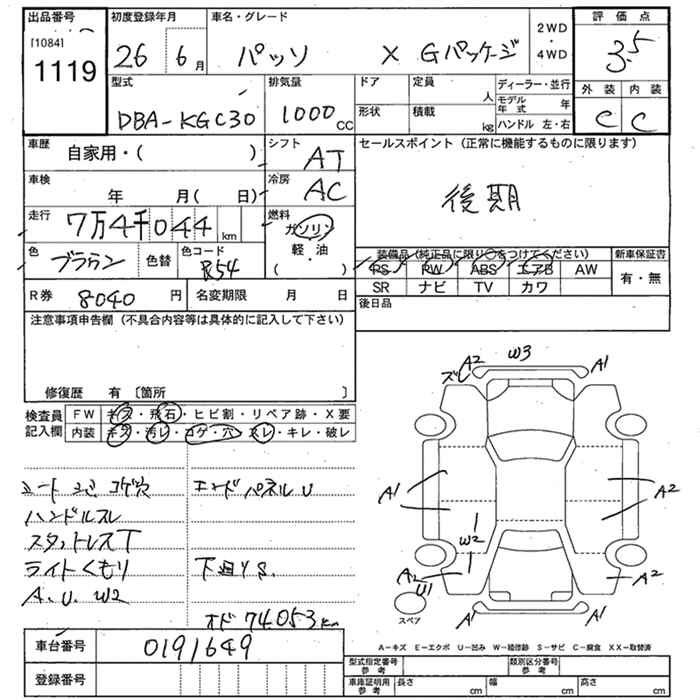 出品番号 初度登録年月 車名・グレード 2WD・4WD 評価点
[1084]
1119 26 6月 パッソ X Gパッケージ 3.5
型式 排気量 ドア 定員 人 ディーラー・並行 外装 内装
DBA-KGC30 1000 CC 形状 積載 kg モデル年式 年 C C
ハンドル 左・右
車歴 自家用・( ) シフト AT セールスポイント (正常に機能するものに限ります)
車検 年 月( 日) 冷房 AC 後期
走行 7万4千044 km 燃料 ガソリン
軽・油
( )
色 ブラウン 色替 色コード R54 装備品 (純正品に限り○をつけてください) 新車保証書
PS PW ABS エアB AW 有・無
SR ナビ TV カワ
R券 8040 円 名変期限 月 日 後日品
注意事項申告欄 (不具合内容等は具体的に記入して下さい)
修復歴 有 〔箇所 〕
検査員記入欄 FW キズ・飛石・ヒビ割・リペア跡・X要
内装 キズ・汚レ・コゲ・穴・スレ・キレ・破レ
シート コゲ穴 エンドパネルU
ハンドルスレ
スタットレスT
ライトくもり 下廻りS
A.U.W2
オド 74053km
A2 W3 A1
ズレ
A1 A2
W2
A2 U1 A2
スペア
A1
車台番号 0191649
A-キズ E-エクボ U-凹み W-修復跡 S-サビ C-腐食 XX-取替済
登録番号 型式指定番号 参考 類別区分番号 参考
車庫証明用 参考 長さ cm 幅 cm 高さ cm